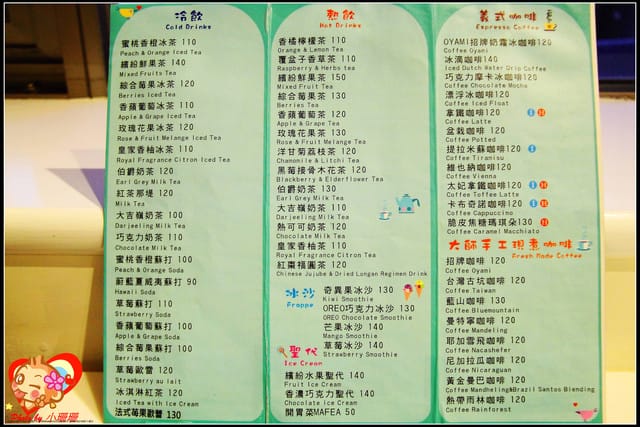 冷飲
Cold Drinks
蜜桃香橙冰茶 110
Peach & Orange Iced Tea
繽紛鮮果茶 140
Mixed Fruits Tea
綜合莓果冰茶 120
Berries Iced Tea
香蘋葡萄冰茶 110
Apple & Grape Iced Tea
玫瑰花果冰茶 120
Rose & Fruit Melange Iced Tea
皇家香柚冰茶 110
Royal Fragrance Citron Iced Tea
伯爵奶茶 120
Earl Grey Milk Tea
紅茶那堤 120
Milk Tea
大吉嶺奶茶 100
Darjeeling Milk Tea
巧克力奶茶 110
Chocolate Milk Tea
蜜桃香橙蘇打 100
Peach & Orange Soda
蔚藍夏威夷蘇打 90
Hawaii Soda
草莓蘇打 110
Strawberry Soda
香蘋葡萄蘇打 100
Apple & Grape Soda
綜合莓果蘇打 100
Berries Soda
草莓歐蕾 120
Strawberry au lait
冰淇淋紅茶 120
Iced Tea with Ice Cream
法式莓果歐蕾 130
熱飲
Hot Drinks
香橘檸檬茶 110
Orange & Lemon Tea
覆盆子香草茶 110
Raspberry & Herbs tea
繽紛鮮果茶 150
Mixed Fruits Tea
綜合莓果茶 130
Berries Tea
香蘋葡萄茶 120
Apple & Grape Tea
玫瑰花果茶 130
Rose & Fruit Melange Tea
洋甘菊荔枝茶 120
Chamomile & Litchi Tea
黑莓接骨木花茶 120
Blackberry & Elderflower Tea
伯爵奶茶 130
Earl Grey Milk Tea
大吉嶺奶茶 110
Darjeeling Milk Tea
熱可可奶茶 120
Chocolate Milk Tea
皇家香柚茶 110
Royal Fragrance Citron Tea
紅棗福圓茶 120
Chinese Jujube & Dried Longan Regimen Drink
冰沙
Frappe
奇異果冰沙 130
Kiwi Smoothie
OREO巧克力冰沙 130
OREO Chocolate Smoothie
芒果冰沙 140
Mango Smoothie
草莓冰沙 140
Strawberry Smoothie
聖代
Ice Cream
繽紛水果聖代 140
Fruit Ice Cream
香濃巧克力聖代 140
Chocolate Ice Cream
開胃菜MAFEA 50
義式咖啡
Espresso Coffee
OYAMI招牌奶霜冰咖啡120
Coffee Oyami
冰滴咖啡140
Iced Dutch Water Drip Coffee
巧克力摩卡冰咖啡120
Coffee Chocolate Mocha
漂浮冰咖啡120
Coffee Iced Float
拿鐵咖啡120
Coffee Latte
盆栽咖啡 120
Coffee Potted
提拉米蘇咖啡120
Coffee Tiramisu
維也納咖啡120
Coffee Vienna
太妃拿鐵咖啡120
Coffee Toffee Latte
卡布奇諾咖啡120
Coffee Cappuccino
脆皮焦糖瑪琪朵130
Coffee Caramel Macchiato
大師手工現煮咖啡
Fresh Made Coffee
招牌咖啡 120
Coffee Oyami
台灣古坑咖啡 120
Coffee Taiwan
藍山咖啡 130
Coffee Bluemountain
曼特寧咖啡 120
Coffee Mandeling
耶加雪飛咖啡 120
Coffee Nacashefer
尼加拉瓜咖啡 120
Coffee Nicaraguan
黃金曼巴咖啡 120
Coffee Mandheling&Brazil Santos Blending
熱帶雨林咖啡 120
Coffee Rainforest
小珊珊